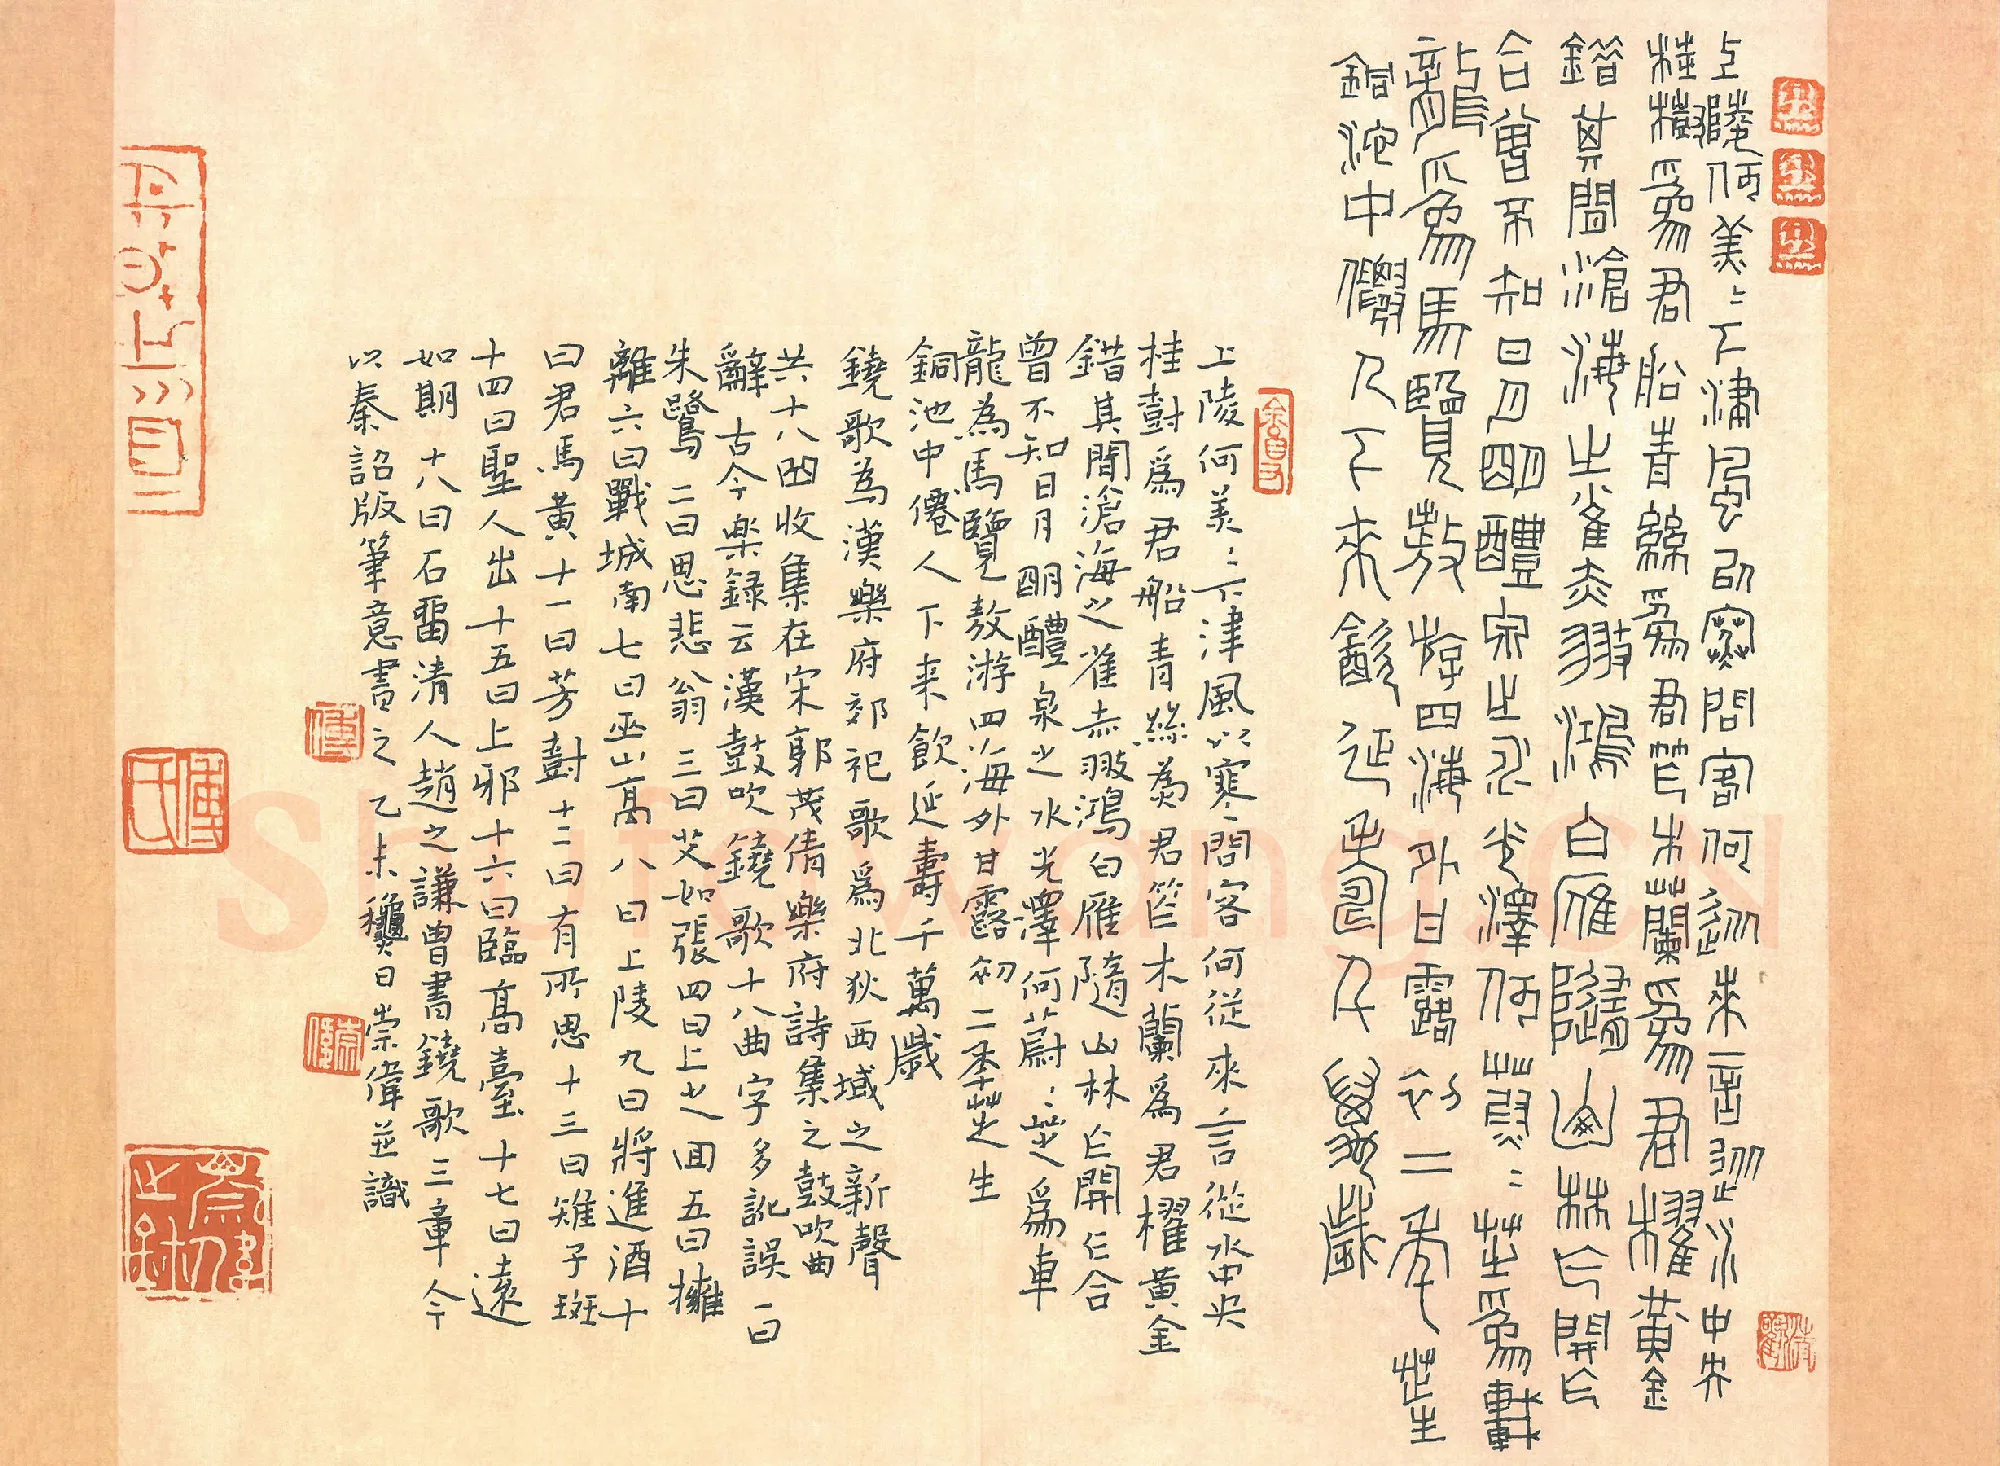 上陵何美〻下津風以寒問客何從来言從水中央
桂樹爲君船青絲爲君笮木蘭爲君櫂黃金
錯其間滄海之雀赤翅鴻白雁隨山林乍開乍
合曾不知日月朙醴泉之水光澤何蔚〻芝爲車
龍爲馬覽敖游四海外甘露初二年芝生
銅池中僊人下來飲延壽千萬歲
上陵何美〻下津風以寒問客何從來言從水中央
桂樹爲君船青絲為君笮木蘭爲君櫂黃金
錯其間滄海之雀赤翅鴻白雁隨山林乍開乍合
曾不知日月朙醴泉之水光澤何蔚〻芝爲車
龍為馬覽敖游四海外甘露初二季芝生
銅池中僊人下来飲延壽千萬歲
鐃歌為漢樂府郊祀歌爲北狄西域之新聲
共十八曲收集在宋郭茂倩樂府詩集之鼓吹曲
辭古今楽録云漢鼓吹鐃歌十八曲字多訛誤一曰
朱鷺二曰思悲翁三曰艾如張四曰上之回五曰擁
離六曰戰城南七曰巫山高八曰上陵九曰將進酒十
曰君馬黃十一曰芳樹十二曰有所思十三曰雉子斑
十四曰聖人出十五曰上邪十六曰臨高臺十七曰遠
如期十八曰石留清人趙之謙曾書鐃歌三章今
以秦詔版筆意書之乙未龝日崇偉並識
傅氏
shufawang.cn